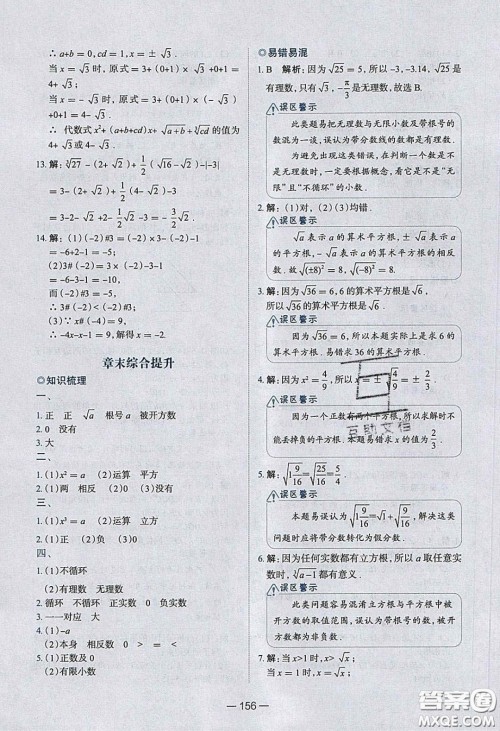 ∴ a+b = 0, cd = 1, x = ± √3.
当 x = √3 时, 原式 = 3+ (0+1) × √3 + √(0+1) =
4+ √3;
当 x = -√3 时, 原式 = 3+ (0+1) × (-√3) + √(0+1) =
4- √3.
∴ 代数式 x²+ (a+b+cd)x+ √(a+b) + ∛cd 的值为
4+ √3 或 4- √3.
13. 解: ∛27 - (2+ √2) + 1/2(√16 - √2) -|-3|
= 3-(2+ √2) + 1/2(4- √2) -3
= 3-2- √2 +2- √2/2 -3
14. 解: (1) (-2)#3 = (-2)×3-(-2)-3+1 =
-6+2-3+1 = -6;
(2)3# (-2) = 3×(-2)-3-(-2) +1 =
-6-3+2+1 = -6.
∴ (-2)#3 = 3#(-2).
(3) ∵ x#(-4) = 9, 解得 x = -2.
章末综合提升
◎知识梳理
一、
1. 正 正 √a 根号 a 被开方数
2. 0 没有
3. 大
二、
1. (1)x² = a (2)运算 平方
2. (1)两 相反 (2)0 (3)没有
三、
1. (1)x³ = a (2)运算 立方
2. (1)正 (2)负 (3)0
四、
1. (1)不循环
(2)有理数 无理数
2. 循环 不循环 正实数 0 负实数
3. 一一对应 大
4. (1)-a
(2)本身 相反数 0 > = <
5. (1)正数及 0
(2)有限小数
◎易错易混
1. B 解析: 因为 √25 = 5, 所以 -3, -3.14, √25 是
有理数, 只有 √3, -π/3 是无理数, 故选 B.
误区警示
此类题易把无理数与无限小数及带根号的
数混为一谈, 误认为带分数线的数都是有理数.
为避免出现这类错误, 在判断一个数是不是无理数
时, 一定要根据概念, 看它是不是“无
限”且“不循环”的小数.
2. 解: (1)对, (2) (3)均错.
误区警示
√a 表示 a 的算术平方根, ± √a 表示 a 的平
方根, - √a 表示 a 的算术平方根的相反数.
3. 解: 因为 √36 = 6, 所以 √36 的算术平方根是 √6.
误区警示
因为 √36 = 6, 所以本题实际上是求 6 的算
术平方根. 易错求 36 的算术平方根.
4. 解: 因为 x² = 4/9, 所以 x = ± √(4/9) = ± 2/3.
误区警示
因为一个正数有两个平方根, 所以求解时不
能丢掉负的平方根. 本题易错求 x 的值为 2/3.
互助文档
5. 解: √(1 9/16) = √(25/16) = 5/4.
误区警示
本题易误认为 √(1 9/16) = √1 + √(9/16), 解决这类
问题时应将带分数转化为假分数.
6. 解: 因为任何实数都有立方根, 所以 a 取任意实
数, ∛(a-1) 都有意义.
误区警示
此类问题容易混淆立方根与平方根中被开
方数的取值范围, 误认为带根号的数, 被开方数
都为非负数.
7. 解: 当 x>1 时, x> √x;
当 x = 1 时, x = √x;
— 156 —
答案圈
MXQE.COM